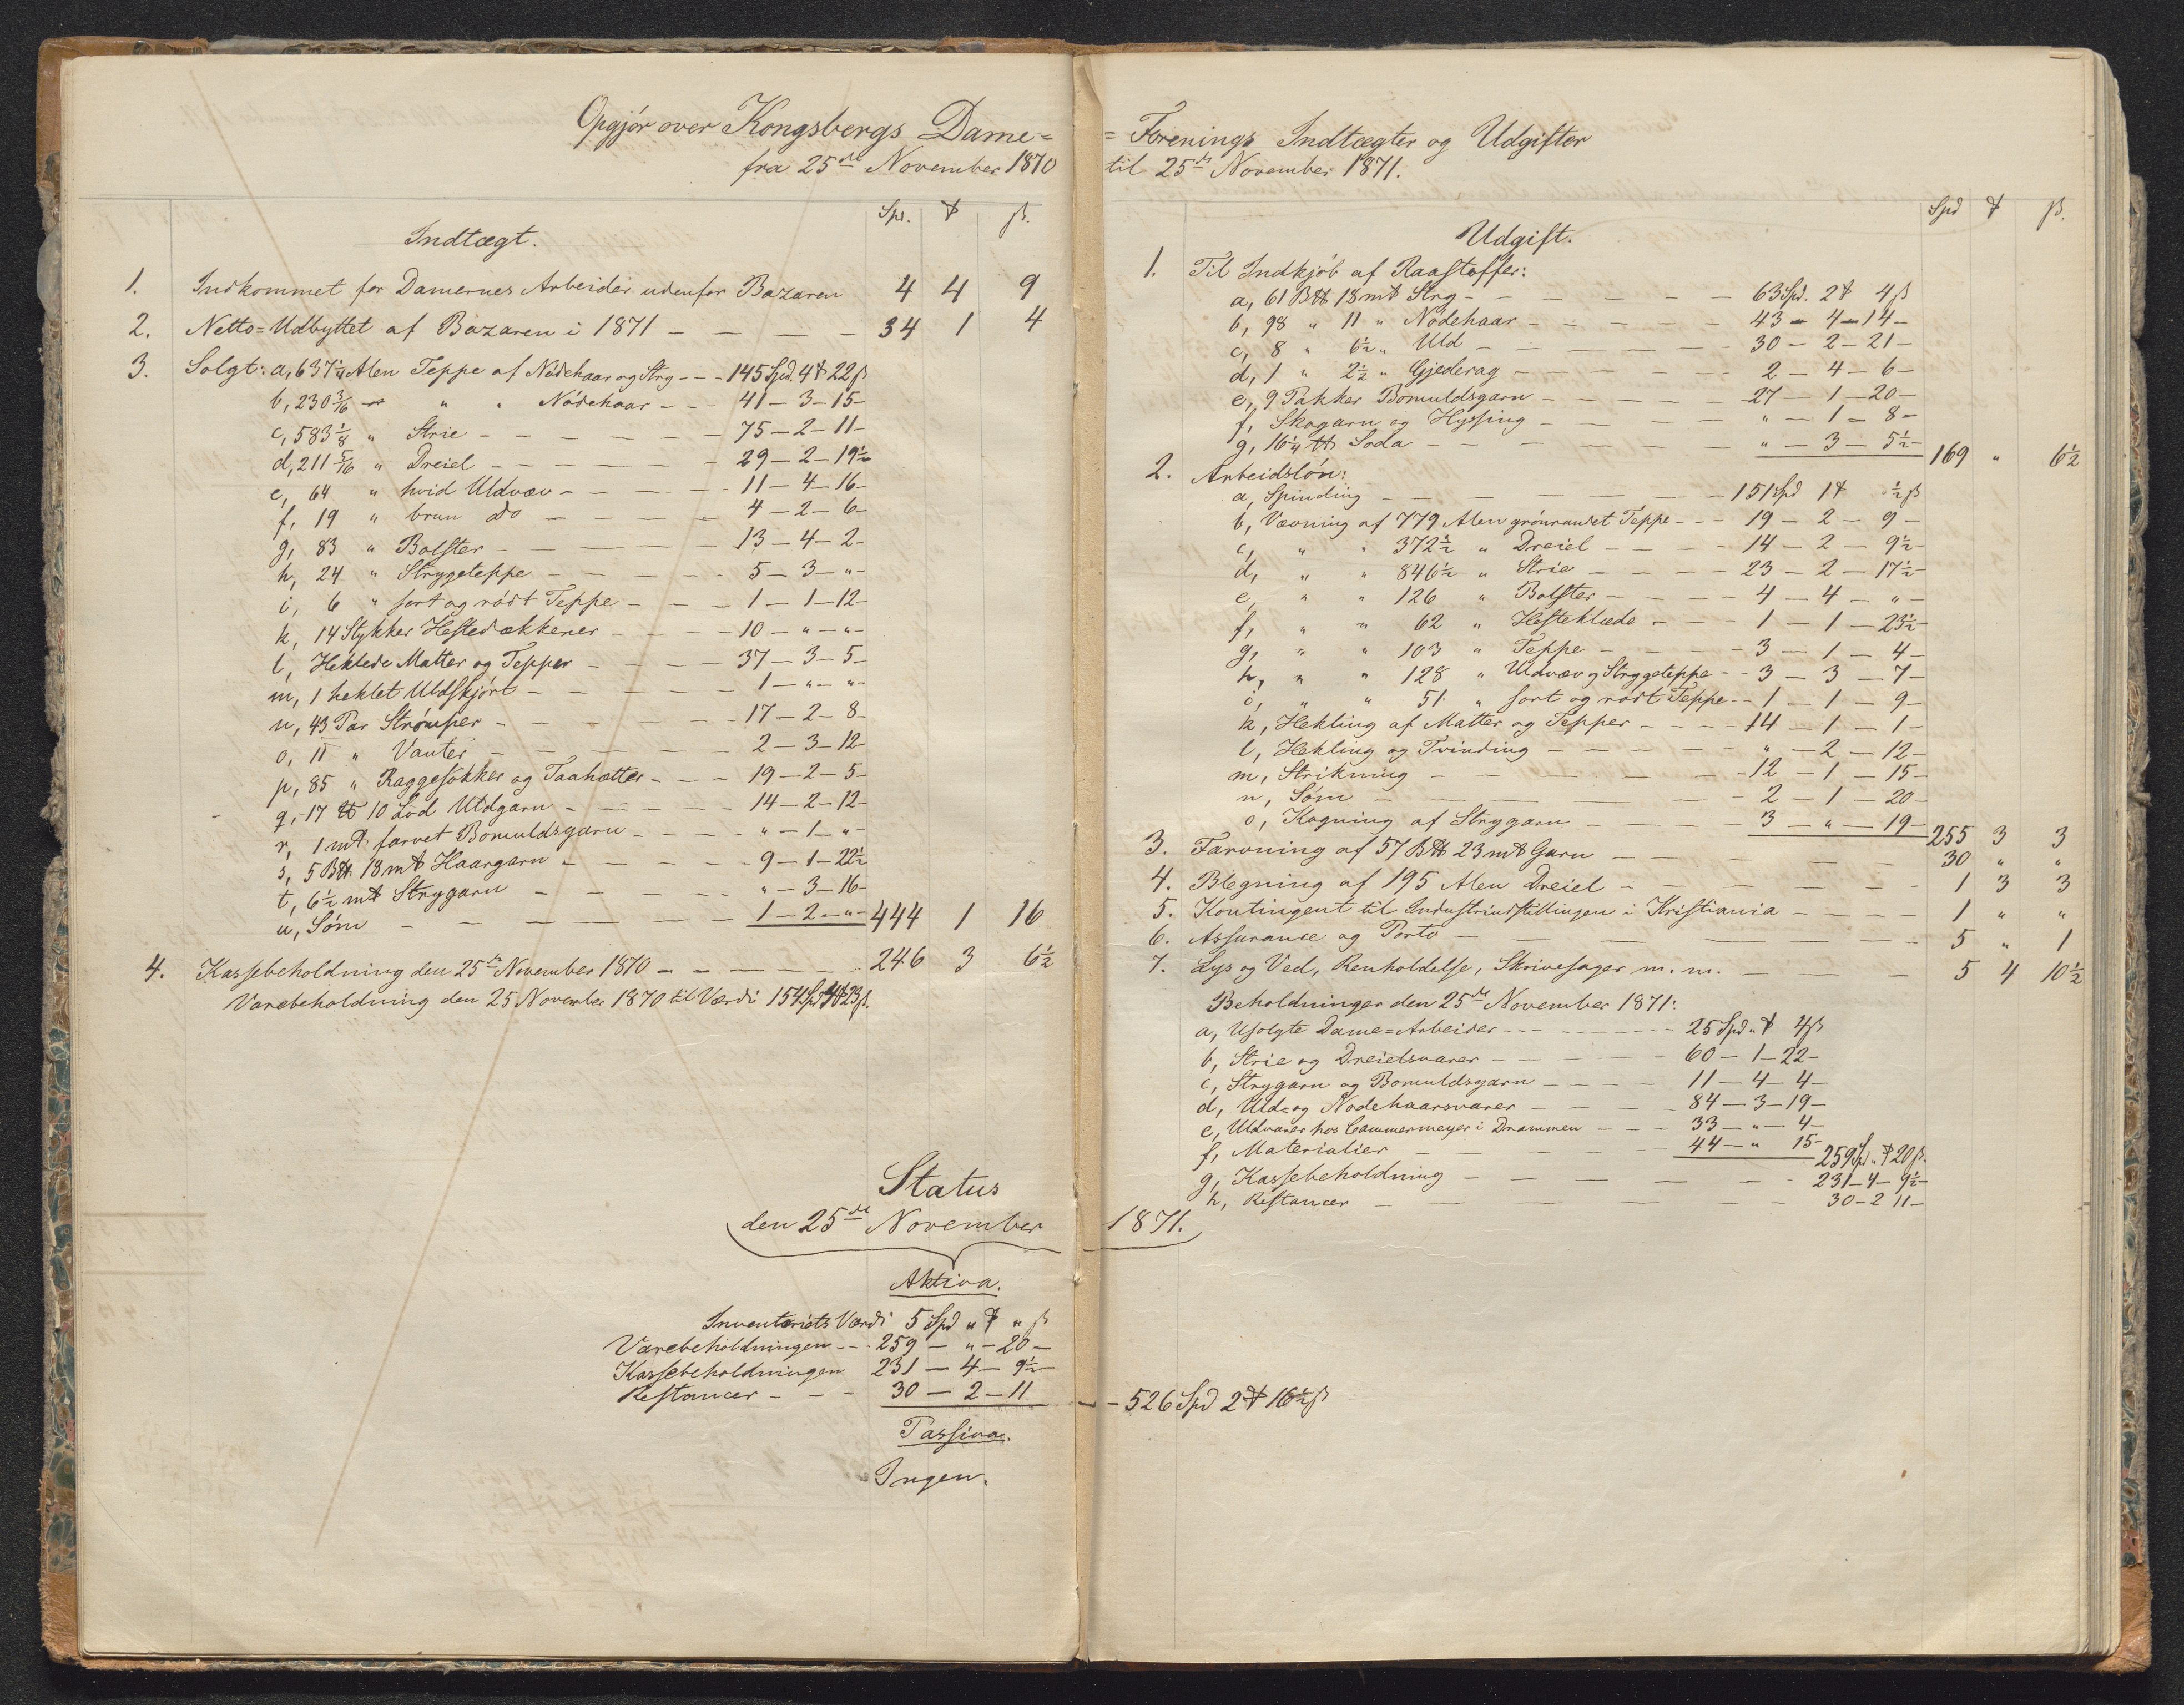 Opgjør over Kongsbergs Dame=
fra 25de November 1870
Spd. ₰ ß.
Indtægt.
1. Indkommet for Damernes Arbeider udenfor Bazaren 4 4 9
2. Netto=Udbyttet af Bazaren i 1871 — — — — 34 1 4
3. Solgt: a, 637 1/4 Alen Teppe af Nødehaar og Stry - - - 145 Spd. 4 ₰ 22 ß
b, 230 3/16 " " " Nødehaar - - 41 — 3 — 15 —
c, 583 1/8 " Strie — — — — — 75 — 2 — 11 —
d, 211 5/16 " Dreiel — — — — — 29 — 2 — 19 1/2
e, 64 " hvid Uldvæv — — — — 11 — 4 — 16 —
f, 19 " brun do — — — — 4 — 2 — 6 —
g, 83 " Bolster — — — — — 13 — 4 — 2 —
h, 24 " Strygeteppe — — — — 5 — 3 — " —
i, 6 " sort og rødt Teppe — — — 1 — 1 — 12 —
k, 14 Stykker Hestedækkener — — — 10 — " — " —
l, Heklede Matter og Tepper — — — 37 — 3 — 5 —
m, 1 heklet Uldskjørt — — — — 1 — " — " —
n, 43 Par Strømper — — — — — 17 — 2 — 8 —
o, 11 " Vanter — — — — — 2 — 3 — 12 —
p, 85 " Raggesokker og Taahætter — — — 19 — 2 — 5 —
q, 17 ℔ 10 Lod Uldgarn — — — — 14 — 2 — 12 —
r, 1 m₰ farvet Bomuldsgarn — — — " — 1 — " —
s, 5 B℔ 18 m₰ Haargarn — — — — 9 — 1 — 22 1/2
t, 6 1/2 m₰ Strygarn — — — — " — 3 — 16 —
u, Søm — — — — — — 1 — 2 — " — 444 1 16
4. Kassebeholdning den 25de November 1870 — — — — — 246 3 6 1/2
Varebeholdning den 25 November 1870 til Værdi 154 Spd 4 ₰ 23 ß.
Status
den 25de November
Aktiva.
Inventariets Værdi 5 Spd " ₰ " ß
Varebeholdningen - - - 259 — " — 20 —
Kassebeholdningen 231 — 4 — 9 1/2 —
Restancer - - - 30 — 2 — 11
Passiva.
Ingen.
= Forenings Indtægter og Udgifter
til 25de November 1871.
Spd ₰ ß.
Udgift.
1. Til Indkjøb af Raastoffer:
a, 61 B℔ 18 m₰ Stry — — — — — 63 Spd. 2 ₰ 4 ß
b, 98 " 11 " Nødehaar — — — — — 43 — 4 — 14 —
c, 8 " 6 1/2 " Uld — — — — — 30 — 2 — 21 —
d, 1 " 2 1/2 " Gjederag — — — — — 2 — 4 — 6 —
e, 9 Pakker Bomuldsgarn — — — — — 27 — 1 — 20 —
f, Skogarn og Hyssing — — — — — " — 1 — 8 —
g, 16 1/4 ℔ Soda — — — — — " — 3 — 5 1/2 — 169 " 6 1/2
2. Arbeidsløn:
a, Spinding — — — — — — 151 Spd 1 ₰ 1/2 ß
b, Vævning af 779 Alen grønrandet Teppe - - - 19 — 2 — 9 —
c, " " 372 1/2 " Dreiel — — — — 14 — 2 — 9 1/2 —
d, " " 846 1/2 " Strie — — — — 23 — 2 — 17 1/2 —
e, " " 126 " Bolster — — — — 4 — 4 — " —
f, " " 62 " Hesteklæde — — — 1 — 1 — 23 1/2 —
g, " " 103 " Teppe — — — — 3 — 1 — 4 —
h, " " 128 " Uldvæv og Strygeteppe - - 3 — 3 — 7 —
i, " " 51 " sort og rødt Teppe - - 1 — 1 — 9 —
k, Hekling af Matter og Tepper — — — 14 — 1 — 1 —
l, Hekling og Tvinding — — — — — " — 2 — 12 —
m, Strikning — — — — — — 12 — 1 — 15 —
n, Søm — — — — — — 2 — 1 — 20 —
o, Kogning af Strygarn — — — — 3 — " — 19 — 255 3 3
3. Farvning af 57 B℔ 23 m₰ Garn — — — — — 30 " "
4. Blegning af 195 Alen Dreiel — — — — — 1 3 3
5. Kontingent til Industriudstillingen i Kristiania — — — — 1 " "
6. Assurance og Porto — — — — — — 5 " 1
7. Lys og Ved, Renholdelse, Skrivesager m. m. — — — — 5 4 10 1/2
Beholdninger den 25de November 1871:
a, Usolgte Dame=Arbeider - - - - - - - 25 Spd " ₰ 4 ß
b, Strie og Dreielsvarer — — — — — 60 — 1 — 22 —
c, Strygarn og Bomuldsgarn — — — — 11 — 4 — 4 —
d, Uld= og Nødehaarsvarer — — — — 84 — 3 — 19 —
e, Uldvarer hos Cammermeyer i Drammen — — — 33 — " — 4 —
f, Materialier — — — — — 44 — " 15 — 259 Spd. " ₰ 20 ß.
g, Kassebeholdning — — — — — — 231 — 4 — 9 1/2 —
h, Restancer — — — — — — 30 — 2 11 —
1871.
- - 526 Spd 2 ₰ 16 1/2 ß